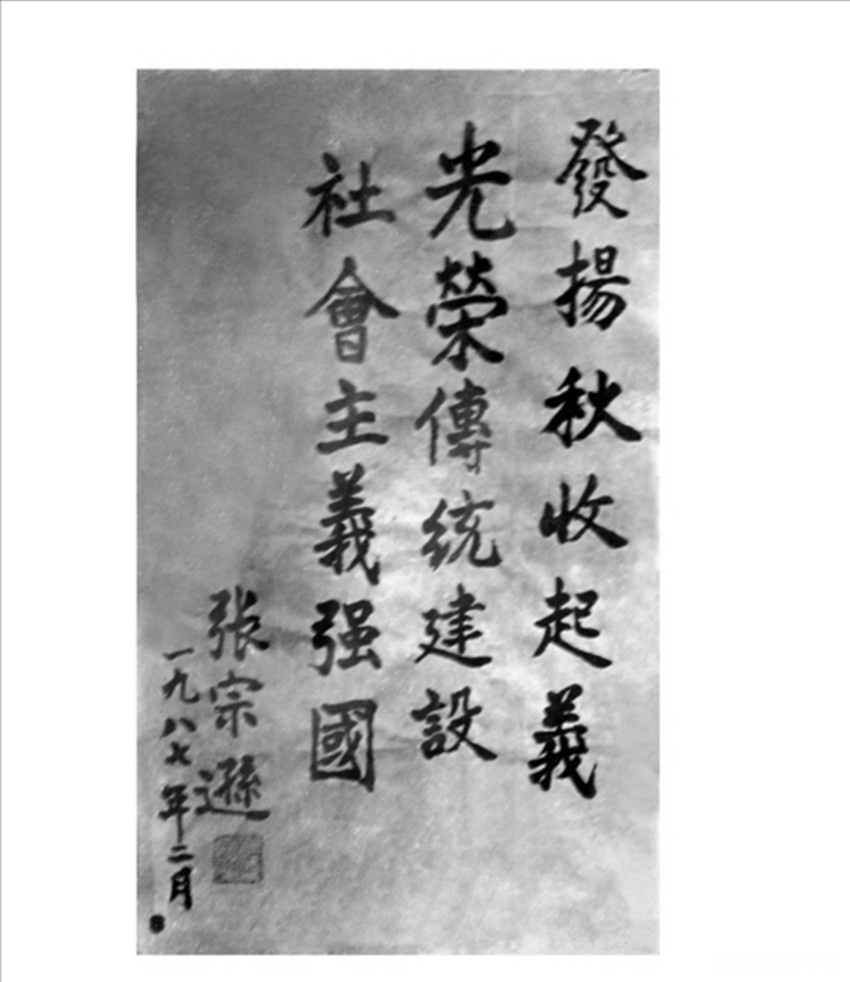 發揚秋收起義
光榮傳統建設
社會主義强國
张宗遜
一九八七年二月